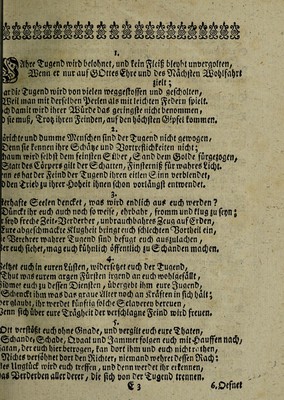 1.
Ahre Tugend wird belohnet, und kein Fleiß bleibt unvergolten,
Wenn er nur auf GOttes Ehre und des Nächsten Wohlfahrt
zielt;
die Tugend wird von vielen weggestossen und gescholten,
Weil man mit derselben Perlen als mit leichten Federn spielt.
damit wird ihrer Würde das geringste nicht benommen,
sie muß, Trotz ihren Feinden, auf den höchsten Gipfel kommen.
2.
hörichte und dumme Menschen sind der Tugend nicht gewogen,
Denn sie kennen ihre Schätze und Vortreflichkeiten nicht;
chaum wird selbst dem feinsten Silber, Sand dem Golde fürgezogen,
Statt des Cörpers gilt der Schatten, Finsterniß für wahres Licht.
es hat der Feind der Tugend ihren eitlen Sinn verblendet,
den Trieb zu ihrer Hoheit ihnen schon vorlängst entwendet.
3.
erhafte Seelen dencket, was wird endlich aus euch werden?
Dünckt ihr euch auch noch so weise, ehrbahr, fromm und klug zu seyn;
seyd freche Zeit-Verderber, unbrauchbahres Zeug auf Erden,
Eure abgeschmackte Klugheit bringt euch schlechten Vortheil ein,
Verehrer wahrer Tugend sind befugt euch auszulachen,
euch siehet, mag euch kühnlich öffentlich zu Schanden machen.
4.
euren Lüsten, widersetzt euch der Tugend,
Thut was eurem argen Fürsten irgend an euch wohlgefällt,
euch zu dessen Diensten, übergebt ihm eure Jugend,
Schenckt ihm was das graue Alter noch an Kräften in sich hält;
glaubt, ihr werdet künftig solche Sclaverey bereuen,
Wenn sich über eure Trägheit der verschlagne Feind wird freuen.
5.
Ott verstößt euch ohne Gnade, und vergilt euch eure Thaten,
Schande, Schade, Qvaal und Jammer folgen euch mit Hauffen nach,
der euch hierbetrogen, kan dort ihm und euch nicht rathen,
Nichts versöhnet dort den Richter, niemand wehret dessen Rach:
Unglück wird euch treffen, und denn werdet ihr erkennen,
das Verderben aller derer, die sich von der Tugend trennen.
E 3 6. Oefnet